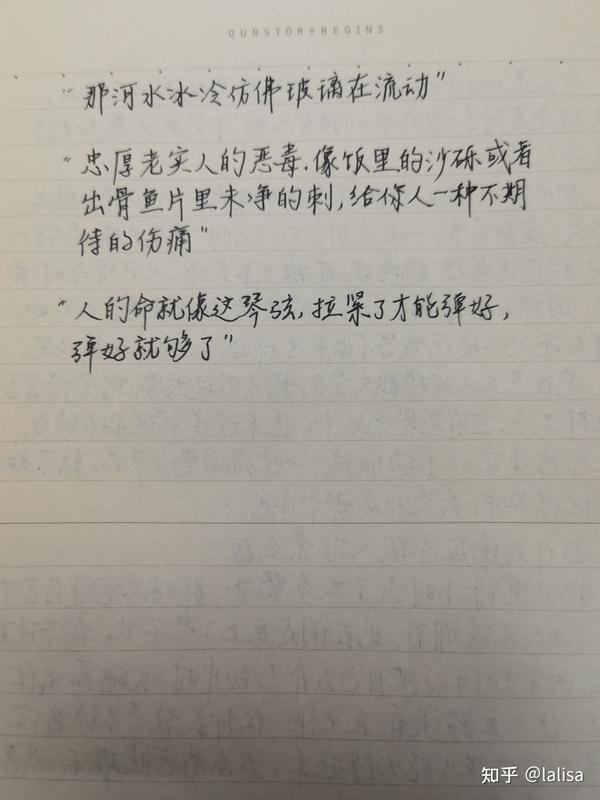 OURSTORYBEGINS
“那河水冰冷仿佛玻璃在流动”
“忠厚老实人的恶毒.像饭里的沙砾或者
出骨鱼片里未净的刺,给你人一种不期
待的伤痛”
“人的命就像这琴弦,拉紧了才能弹好,
弹好就够了”
知乎 @lalisa